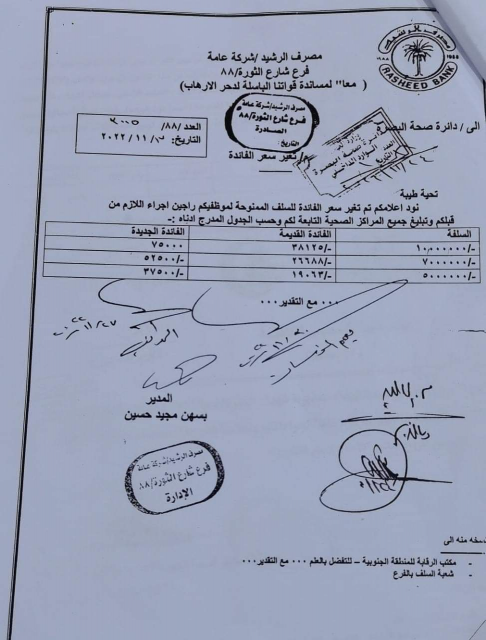 مصرف الرشيد
١٩٨٨ 1988
RASHEED BANK
مصرف الرشيد /شركة عامة
فرع شارع الثورة/٨٨
( معا" لمساندة قواتنا الباسلة لدحر الارهاب)
مصرف الرشيد/شركة عامة
فرع شارع الثورة/٨٨
الصادرة
التاريخ:
العدد /٨٨/
التاريخ: ٢٠٢٢/١١/٣
الى/ دائرة صحة البصرة
م/ تغير سعر الفائدة
تحية طيبة
نود اعلامكم تم تغير سعر الفائدة للسلف الممنوحة لموظفيكم راجين اجراء اللازم من
قبلكم وتبليغ جميع المراكز الصحية التابعة لكم وحسب الجدول المدرج ادناه :-
السلفة الفائدة القديمة الفائدة الجديدة
١٠,٠٠٠٠٠٠/- ٣٨١٢٥/- ٧٥٠٠٠
٧٠٠٠٠٠٠/- ٢٦٦٨٨/- ٥٢٥٠٠/-
٥٠٠٠٠٠٠/- ١٩٠٦٣/- ٣٧٥٠٠/-
٠٠٠ مع التقدير٠٠٠
المدير
بسهن مجيد حسين
مصرف الرشيد/شركة عامة
فرع شارع الثورة/٨٨
الإدارة
نسخه منه الى
- مكتب الرقابة للمنطقة الجنوبية – للتفضل بالعلم ٠٠٠ مع التقدير٠٠٠
- شعبة السلف بالفرع